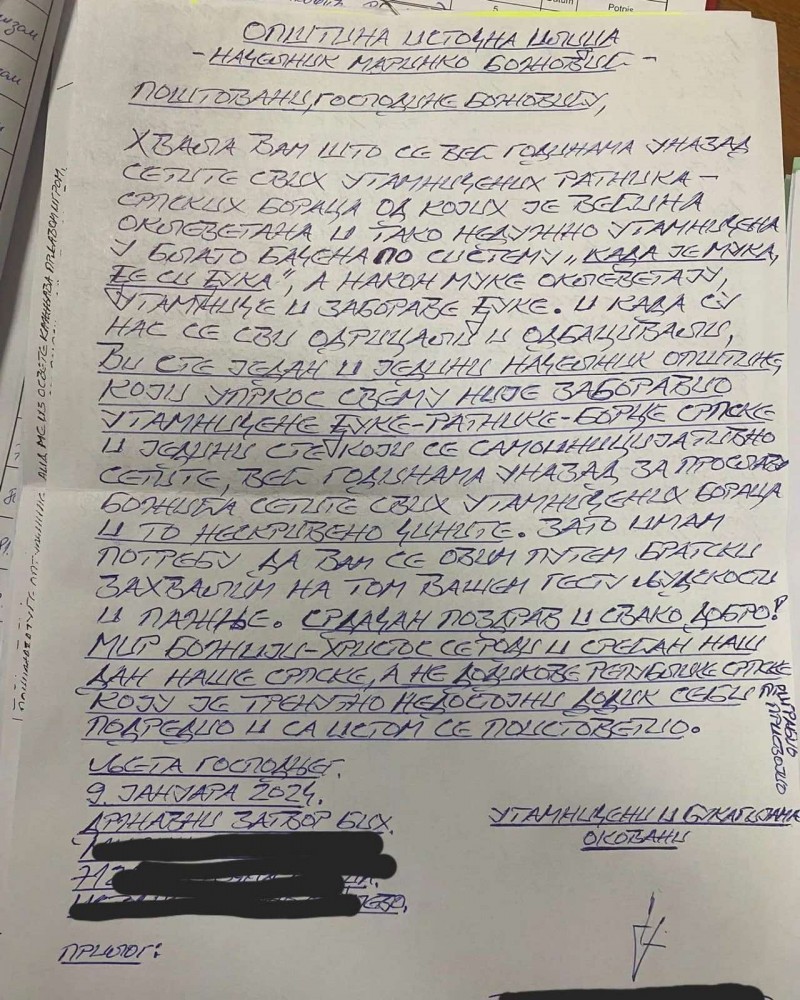 Potpis
5
ОПШТИНА ИСТОЧНА ИЛИЏА
- НАЧЕЛНИК МАРИНКО БОЖОВИЋ -
ПОШТОВАНИ, ГОСПОДИНЕ БОЖОВИЋУ,
ХВАЛА ВАМ ШТО СЕ ВЕЋ ГОДИНАМА УНАЗАД
СЕТИТЕ СВИХ УТАМНИЧЕНИХ РАТНИКА –
СРПСКИХ БОРАЦА ОД КОЈИХ ЈЕ ВЕЋИНА
ОКЛЕВЕТАНА И ТАКО НЕДУЖНО УТАМНИЧЕНА
У БЛАТО БАЧЕНА ПО СИСТЕМУ „КАДА ЈЕ МУКА,
ЂЕ СИ ЂУКА“, А НАКОН МУКЕ ОКЛЕВЕТАЈУ,
УТАМНИЧЕ И ЗАБОРАВЕ ЂУКЕ. И КАДА СУ
НАС СЕ СВИ ОДРИЦАЛИ И ОДБАЦИВАЛИ,
ВИ СТЕ ЈЕДАН И ЈЕДИНИ НАЧЕЛНИК ОПШТИНЕ,
КОЈИ УПРКОС СВЕМУ НИЈЕ ЗАБОРАВИО
УТАМНИЧЕНЕ ЂУКЕ-РАТНИКЕ-БОРЦЕ СРПСКЕ
И ЈЕДИНИ СТЕ КОЈИ СЕ САМОИНИЦИЈАТИВНО
СЕТИТЕ, ВЕЋ ГОДИНАМА УНАЗАД ЗА ПРОСЛАВУ
БОЖИЋА СЕТИТЕ СВИХ УТАМНИЧЕНИХ БОРАЦА
И ТО НЕСКРИВЕНО ЧИНИТЕ. ЗАТО ИМАМ
ПОТРЕБУ ДА ВАМ СЕ ОВИМ ПУТЕМ БРАТСКИ
ЗАХВАЛИМ НА ТОМ ВАШЕМ ГЕСТУ ЉУДСКОСТИ
И ПАЖЊЕ. СРДАЧАН ПОЗДРАВ И СВАКО ДОБРО!
МИР БОЖИЈИ-ХРИСТОС СЕ РОДИ И СРЕЋАН НАШ
ДАН НАШЕ СРПСКЕ, А НЕ ДОДИКОВЕ РЕПУБЛИКЕ СРПСКЕ
КОЈУ ЈЕ ТРЕНУТНО НЕДОСТОЈНИ ДОДИК СЕБИ
ПРИГРАБИО
ПРИСВОЈИО
ПОДРЕДИО И СА ИСТОМ СЕ ПОИСТОВЕТИО.
ЉЕТА ГОСПОДЊЕГ.
9. ЈАНУАРА 2024.
ДРЖАВНИ ЗАТВОР БИХ.
712
УТАМНИЧЕНИ И БУКАГИЈАМА
ОКОВАНИ
ПРИЛОГ: